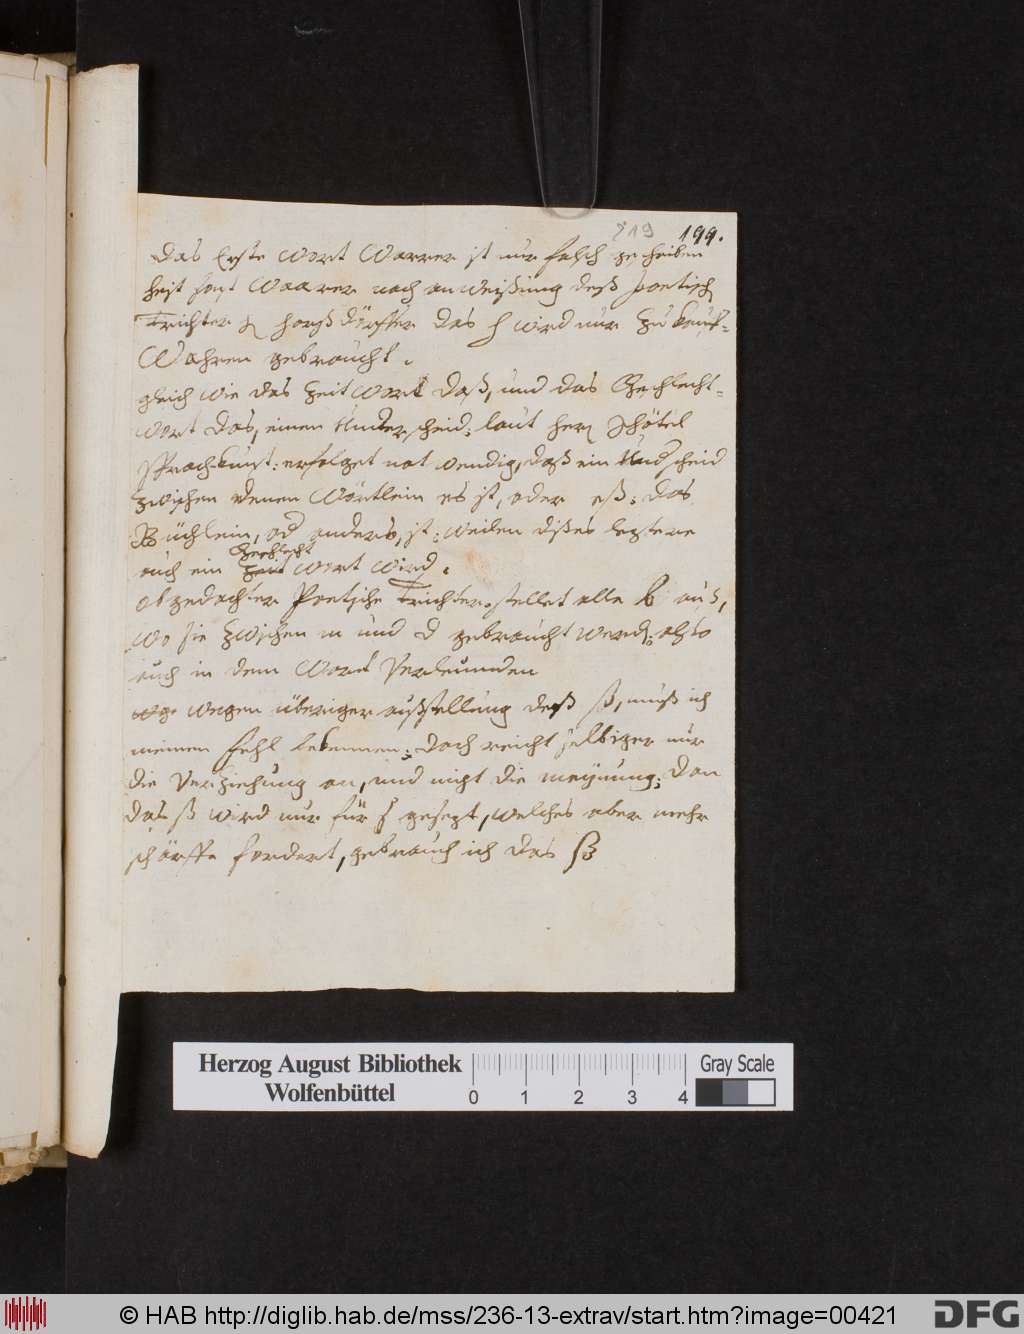 219 199.
Das Erste Wort Warer ist nur falsch geschrieben
heist sonst Waarer nach anweisung deß poetisch
Trichter H Harßdörffer das h wird nur zu kauf-
Wahren gebraucht.
gleich wie das Zeit Wort daß, und das Geschlecht-
wort das, einen Underscheid: laut herr Schötel
Sprachkunst: erfolget not wendig, daß ein Undscheid
zwischen denen Wörtlein es ist, oder eß: das
Büchlein, od anders, ist: weilen dißes leztere
auch ein Geschlecht Zeit wort wird.
obgedachter Poetische Trichter stellet alle b auß,
wo sie zwischen m und d gebraucht werden: also
auch in dem Wort Verleumden
wege wegen überiger außstellung deß ß, muß ich
meinen fehl bekennen: doch reicht selbiger nur
die Verziehung an, und nicht die meynung: dan
das ß wird nur für s gesezt, welches aber mehr
schärffe fordert, gebrauch ich das ß
Herzog August Bibliothek
Wolfenbüttel
0 1 2 3 4
Gray Scale
© HAB http://diglib.hab.de/mss/236-13-extrav/start.htm?image=00421
DFG